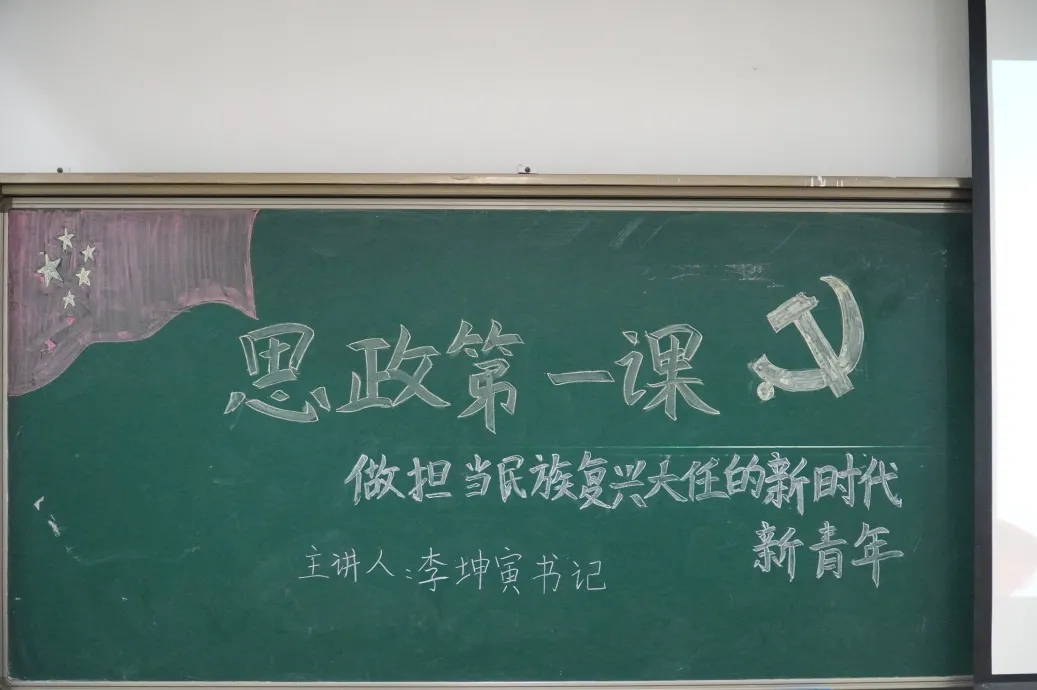 思政第一课
做担当民族复兴大任的新时代
新青年
主讲人:李坤寅书记